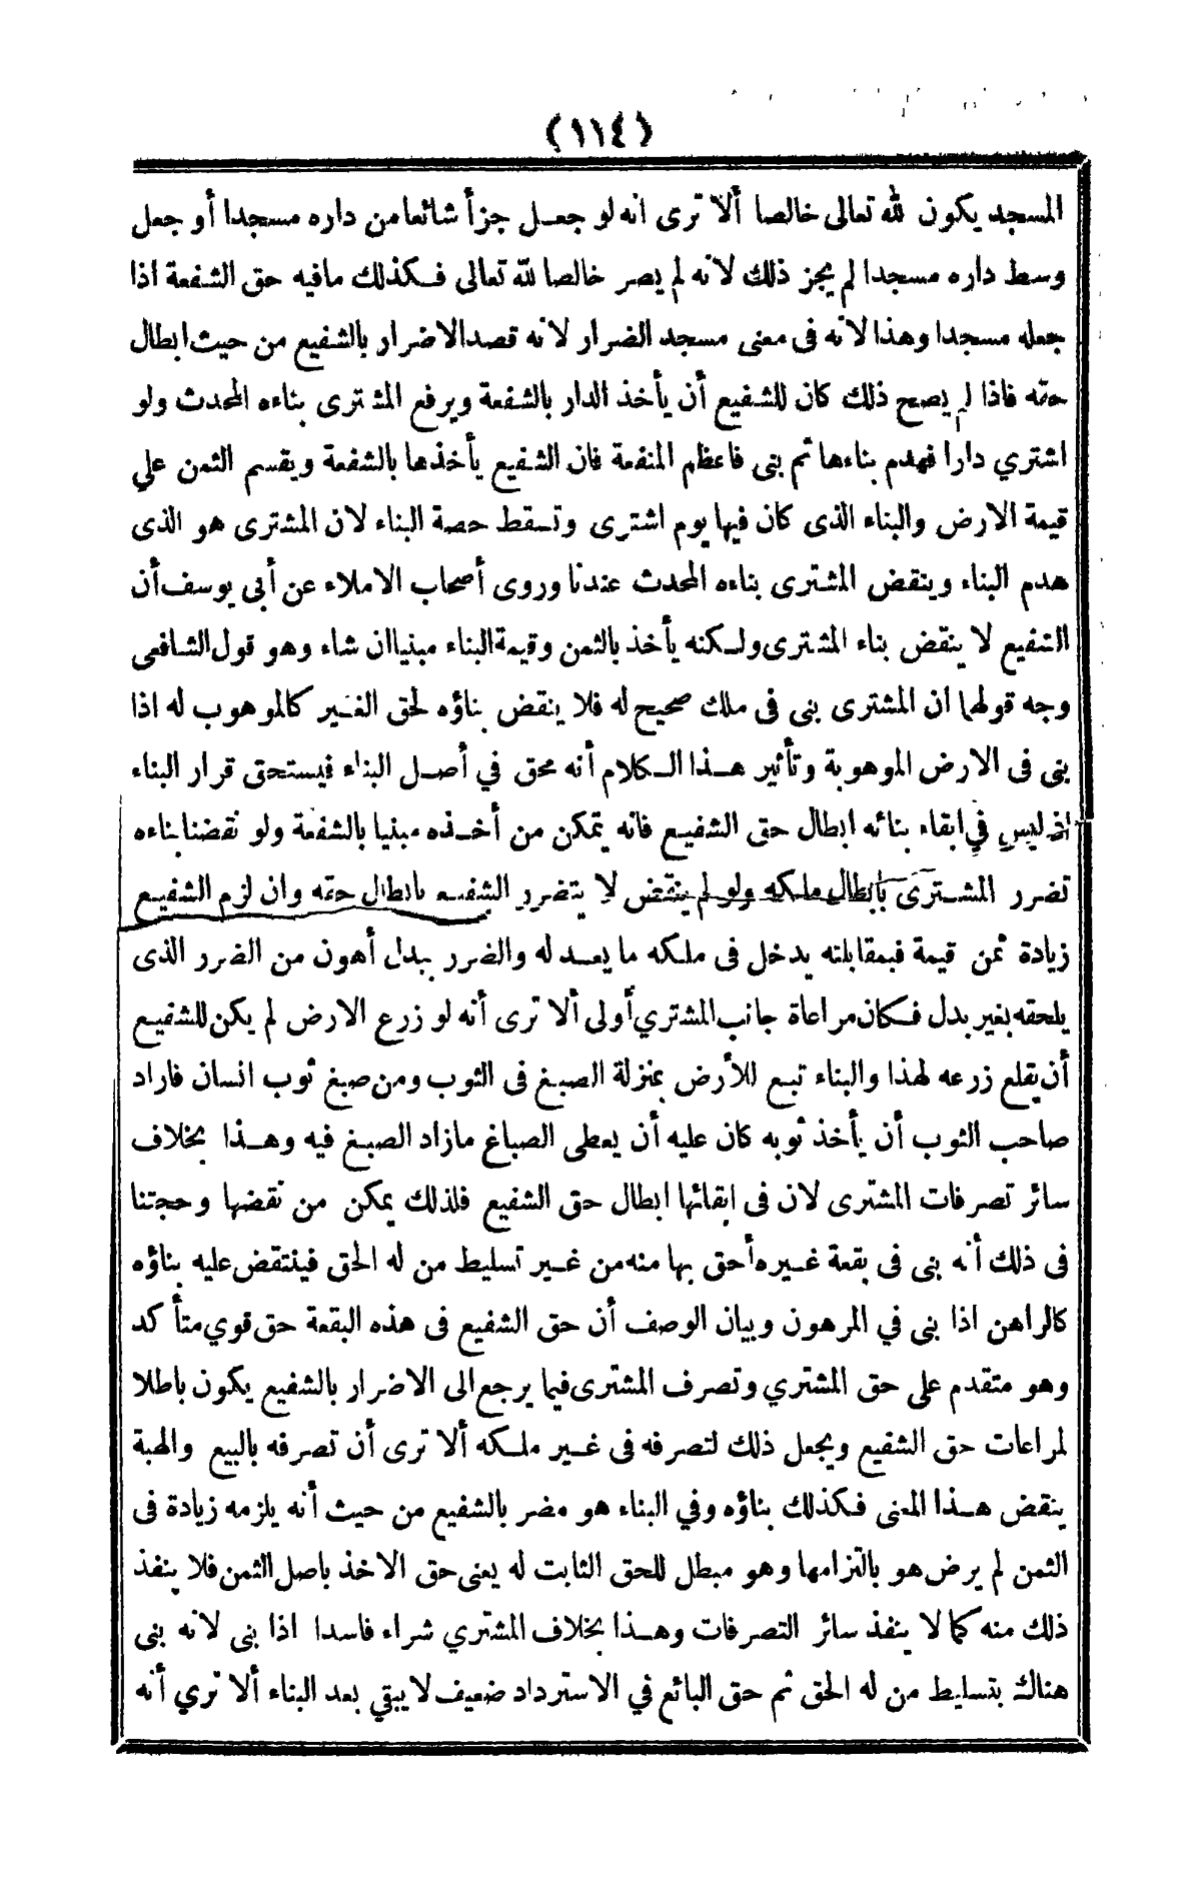 (١١٤)
المسجد يكون لله تعالى خالصا ألا ترى انه لو جعل جزأ شائعا من داره مسجدا أو جعل
وسط داره مسجدا لم يجز ذلك لانه لم يصر خالصا لله تعالى فكذلك مافيه حق الشفعة اذا
جعله مسجدا وهذا لانه فى معنى مسجد الضرار لانه قصد الاضرار بالشفيع من حيث ابطال
حقه فاذا لم يصح ذلك كان للشفيع أن يأخذ الدار بالشفعة ويرفع المشترى بناءه المحدث ولو
اشتري دارا فهدم بناءها ثم بنى فاعظم المنفعة فان الشفيع يأخذها بالشفعة ويقسم الثمن علي
قيمة الارض والبناء الذى كان فيها يوم اشترى وتسقط حصة البناء لان المشترى هو الذى
هدم البناء وينقض المشترى بناءه المحدث عندنا وروى أصحاب الاملاء عن أبى يوسف أن
الشفيع لا ينقض بناء المشترى ولكنه يأخذ بالثمن وقيمة البناء مبنيا ان شاء وهو قول الشافعى
وجه قولهما ان المشترى بنى فى ملك صحيح له فلا ينقض بناؤه لحق الغير كالموهوب له اذا
بنى فى الارض الموهوبة وتأثير هذا الكلام أنه محق في أصل البناء فيستحق قرار البناء
اذ ليس في ابقاء بنائه ابطال حق الشفيع فانه يتمكن من أخذه مبنيا بالشفعة ولو نقضنا بناءه
تضرر المشترى بابطال ملكه ولو لم ينتقض لا يتضرر الشفيع بابطال حقه وان لزم الشفيع
زيادة ثمن قيمة فبمقابلته يدخل فى ملكه ما يعدله والضرر ببدل أهون من الضرر الذى
يلحقه بغير بدل فكان مراعاة جانب المشتري أولى ألا ترى أنه لو زرع الارض لم يكن للشفيع
أن يقلع زرعه لهذا والبناء تبع للأرض بمنزلة الصبغ فى الثوب ومن صبغ ثوب انسان فاراد
صاحب الثوب أن يأخذ ثوبه كان عليه أن يعطى الصباغ مازاد الصبغ فيه وهذا بخلاف
سائر تصرفات المشترى لان فى ابقائها ابطال حق الشفيع فلذلك يمكن من نقضها وحجتنا
فى ذلك أنه بنى فى بقعة غيره أحق بها منه من غير تسليط من له الحق فينتقض عليه بناؤه
كالراهن اذا بنى في المرهون وبيان الوصف أن حق الشفيع فى هذه البقعة حق قوي متأكد
وهو متقدم على حق المشتري وتصرف المشترى فيما يرجع الى الاضرار بالشفيع يكون باطلا
لمراعات حق الشفيع ويجعل ذلك لتصرفه فى غير ملكه ألا ترى أن تصرفه بالبيع والهبة
ينقض هذا المعنى فكذلك بناؤه وفي البناء هو مضر بالشفيع من حيث أنه يلزمه زيادة فى
الثمن لم يرض هو بالتزامها وهو مبطل للحق الثابت له يعنى حق الاخذ باصل الثمن فلا ينفذ
ذلك منه كما لا ينفذ سائر التصرفات وهذا بخلاف المشتري شراء فاسدا اذا بنى لانه بنى
هناك بتسليط من له الحق ثم حق البائع في الاسترداد ضعيف لا يبقي بعد البناء ألا تري أنه